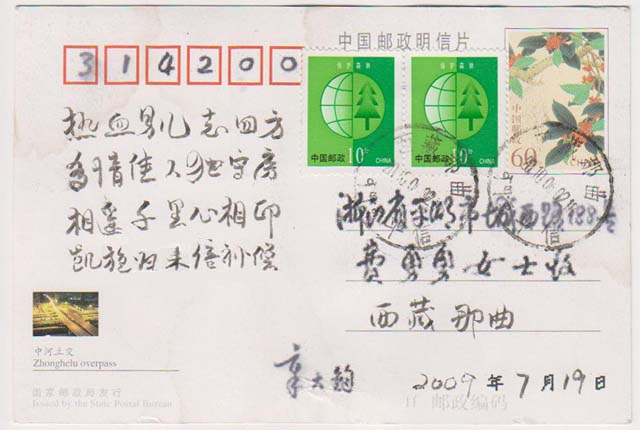 中国邮政明信片
314200
保护森林
保护森林
中国邮政 10分
CHINA
中国邮政 10分
CHINA
中国邮政
60分
CHINA
热血男儿志四方
多情佳人独守房
相逢千里心相印
凯旋归来倍补偿
浙江省平湖市城西路188号
费勇勇女士收
西藏那曲
2009年7月19日
中河立交
Zhonghelu overpass
国家邮政局发行
Issued by the State Postal Bureau
邮政编码